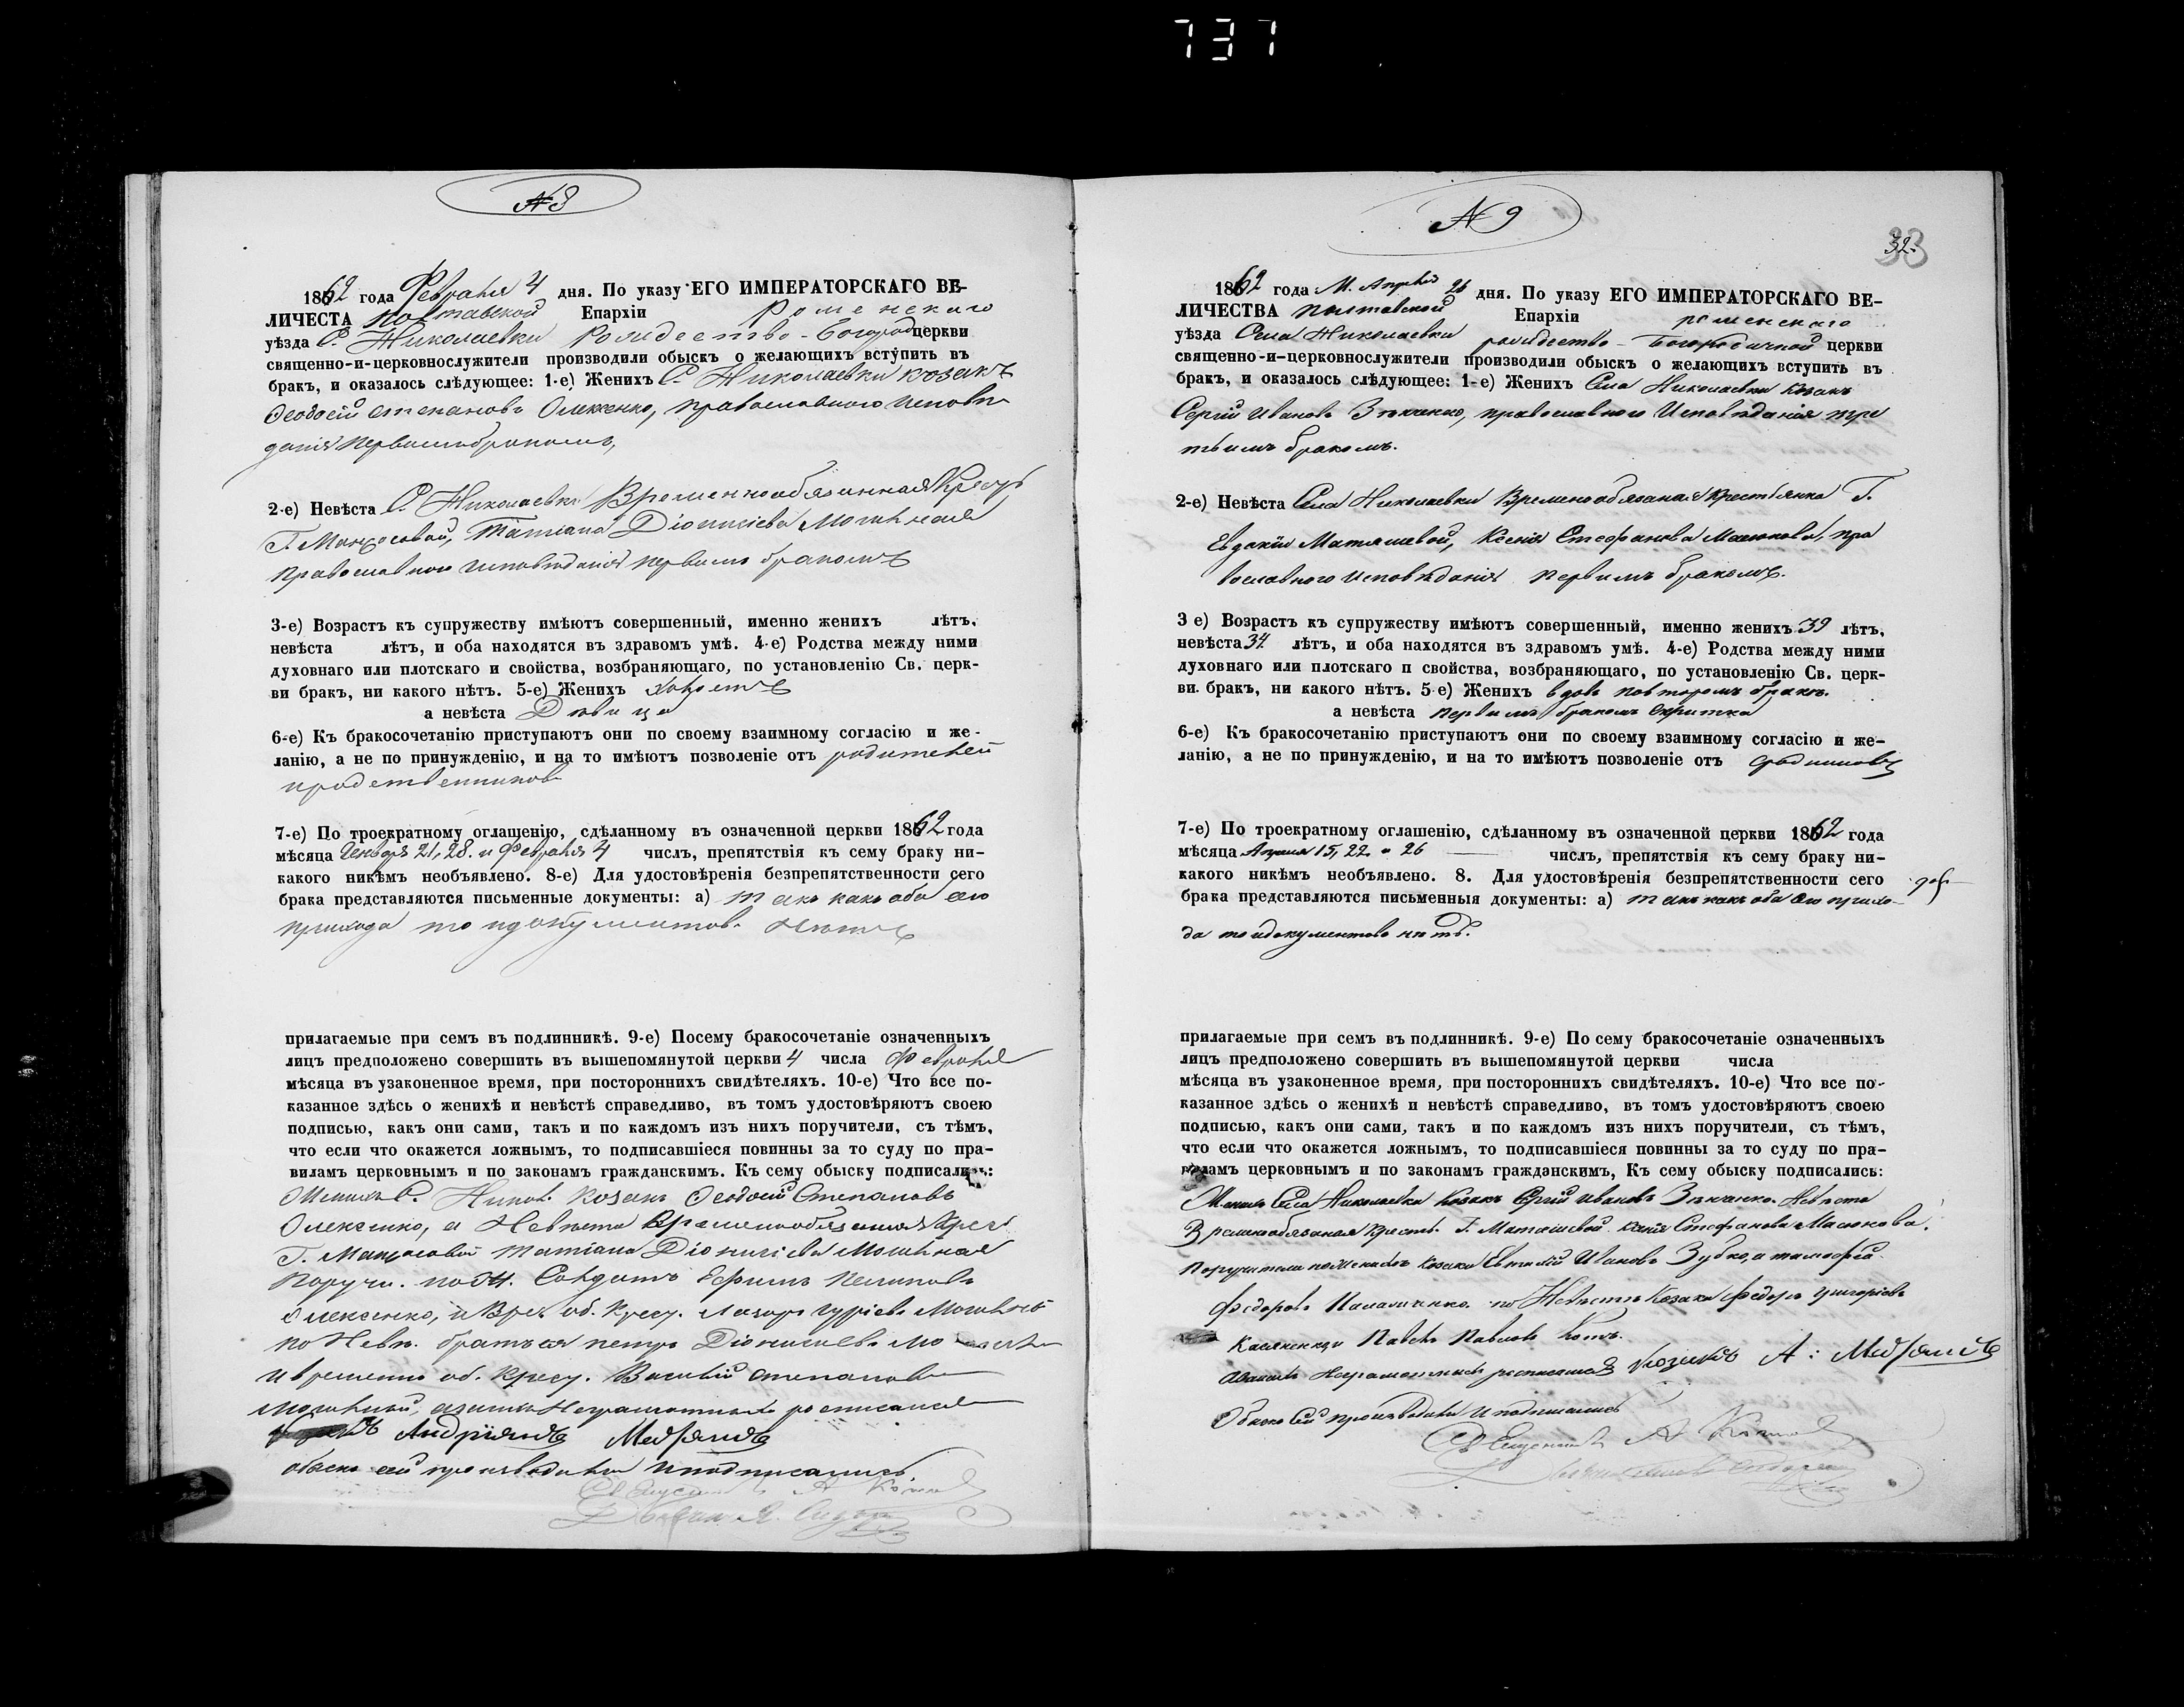 737
№ 8
1862 года Февраля 4 дня. По указу ЕГО ИМПЕРАТОРСКАГО ВЕ-
ЛИЧЕСТА Полтавской Епархіи Роменскаго
уѣзда С. Николаевки Рождество-Богород церкви
священно-и-церковнослужители производили обыскъ о желающихъ вступить въ
бракъ, и оказалось слѣдующее: 1-е) Женихъ С. Николаевки козакъ
Феодосій Степановъ Олексенко, православного исповѣ
данія первымъ бракомъ,
2-е) Невѣста С. Николаевки Временнообязанная Крест
Г. Татіана Діонисіева
Православного исповѣданія первымъ бракомъ
3-е) Возрастъ къ супружеству имѣютъ совершенный, именно женихъ лѣтъ,
невѣста лѣтъ, и оба находятся въ здравомъ умѣ. 4-е) Родства между ними
духовнаго или плотскаго и свойства, возбраняющаго, по установленію Св. церк-
ви бракъ, ни какого нѣтъ. 5-е) Женихъ холостъ
а невѣста Дѣвица
6-е) Къ бракосочетанію приступаютъ они по своему взаимному согласію и же-
ланію, а не по принужденію, и на то имѣютъ позволеніе отъ родителей
и родственниковъ
7-е) По троекратному оглашенію, сдѣланному въ означенной церкви 1862 года
мѣсяца Генваря 21, 28. и Февраля 4 числъ, препятствія къ сему браку ни-
какого никѣмъ необъявлено. 8-е) Для удостовѣренія безпрепятственности сего
брака представляются письменные документы: а) такъ какъ оба сего
прихода то и документовъ нѣтъ
прилагаемые при семъ въ подлинникѣ. 9-е) Посему бракосочетаніе означенныхъ
лицъ предположено совершить въ вышепомянутой церкви 4 числа Февраля
мѣсяца въ узаконенное время, при постороннихъ свидѣтеляхъ. 10-е) Что все по-
казанное здѣсь о женихѣ и невѣстѣ справедливо, въ томъ удостовѣряютъ своею
подписью, какъ они сами, такъ и по каждомъ изъ нихъ поручители, съ тѣмъ,
что если что окажется ложнымъ, то подписавшіеся повинны за то суду по пра-
виламъ церковнымъ и по законамъ гражданскимъ. Къ сему обыску подписались:
С. Никол. козакъ Феодосій Степановъ
Олексенко, а Невѣста Временнообязанная Крест
Г. Татіана Діонисіева
Поручи. по Солдатъ Ефимъ
Олексенко, и Врем. об. Крест. Лазарь
по Невѣ. братъ ея петръ Діонисіевъ
и временно об. Крест. Василій Степановъ
неграмотныхъ росписался
Андріяндъ
обыскъ сей производили и подписались.
№ 9
32.
33
1862 года М. Апрѣля 26 дня. По указу ЕГО ИМПЕРАТОРСКАГО ВЕ-
ЛИЧЕСТВА Полтавской Епархіи роменскаго
уѣзда Села Николаевки рождество-Богородичной церкви
священно-и-церковнослужители производили обыскъ о желающихъ вступить въ
бракъ, и оказалось слѣдующее: 1-е) Женихъ Села Николаевки Козакъ
Сергій Ивановъ православного Исповѣданія тре
тьимъ бракомъ.
2-е) Невѣста Села Николаевки Временобязаная крестьянка Г.
Евдокіи Матяшевой, Ксенія Стефанова Масюкова, пра
вославного исповѣданія первымъ бракомъ.
3 е) Возрастъ къ супружеству имѣютъ совершенный, именно женихъ 39 лѣтъ,
невѣста 34 лѣтъ, и оба находятся въ здравомъ умѣ. 4-е) Родства между ними
духовнаго или плотскаго п свойства, возбраняющаго, по установленію Св. церк-
ви. бракъ, ни какого нѣтъ. 5 е) Женихъ вдовъ по второмъ бракѣ.
а невѣста первымъ бракомъ
6-е) Къ бракосочетанію приступаютъ они по своему взаимному согласію и же-
ланію, а не по принужденію, и на то имѣютъ позволеніе отъ
7-е) По троекратному оглашенію, сдѣланному въ означенной церкви 1862 года
мѣсяца Апреля 15, 22 и 26 числъ, препятствія къ сему браку ни-
какого никѣмъ необъявлено. 8. Для удостовѣренія безпрепятственности сего
брака представляются письменныя документы: а) такъ какъ оба сего прихо-
да то и документовъ нѣтъ.
прилагаемые при семъ въ подлинникѣ. 9-е) По сему бракосочетаніе означенныхъ
лицъ предположено совершить въ вышепомянутой церкви числа
мѣсяца въ узаконенное время, при постороннихъ свидѣтеляхъ. 10-е) Что все по-
казанное здѣсь о женихѣ п невѣстѣ справедливо, въ томъ удостовѣряютъ своею
подписью, какъ они сами, такъ и по каждомъ изъ нихъ поручители, съ тѣмъ,
что если что окажется ложнымъ, то подписавшіеся повинны за то суду по пра-
виламъ церковнымъ и по законамъ гражданскимъ, Къ сему обыску подписались:
Женихъ Села Николаевки Козакъ Сергій Ивановъ Невѣста
Временнобязаная крест. Г. Матяшевой Стефанова Масюкова.
Поручители по Женихѣ козаки Евтихій Ивановъ Зубко, а
Федоровъ по Невѣстѣ Козаки Федоръ Григоріевъ
Павелъ Павловъ Котъ.
Неграмотныхъ росписался Козакъ А:
Обыскъ сей производили и подписались